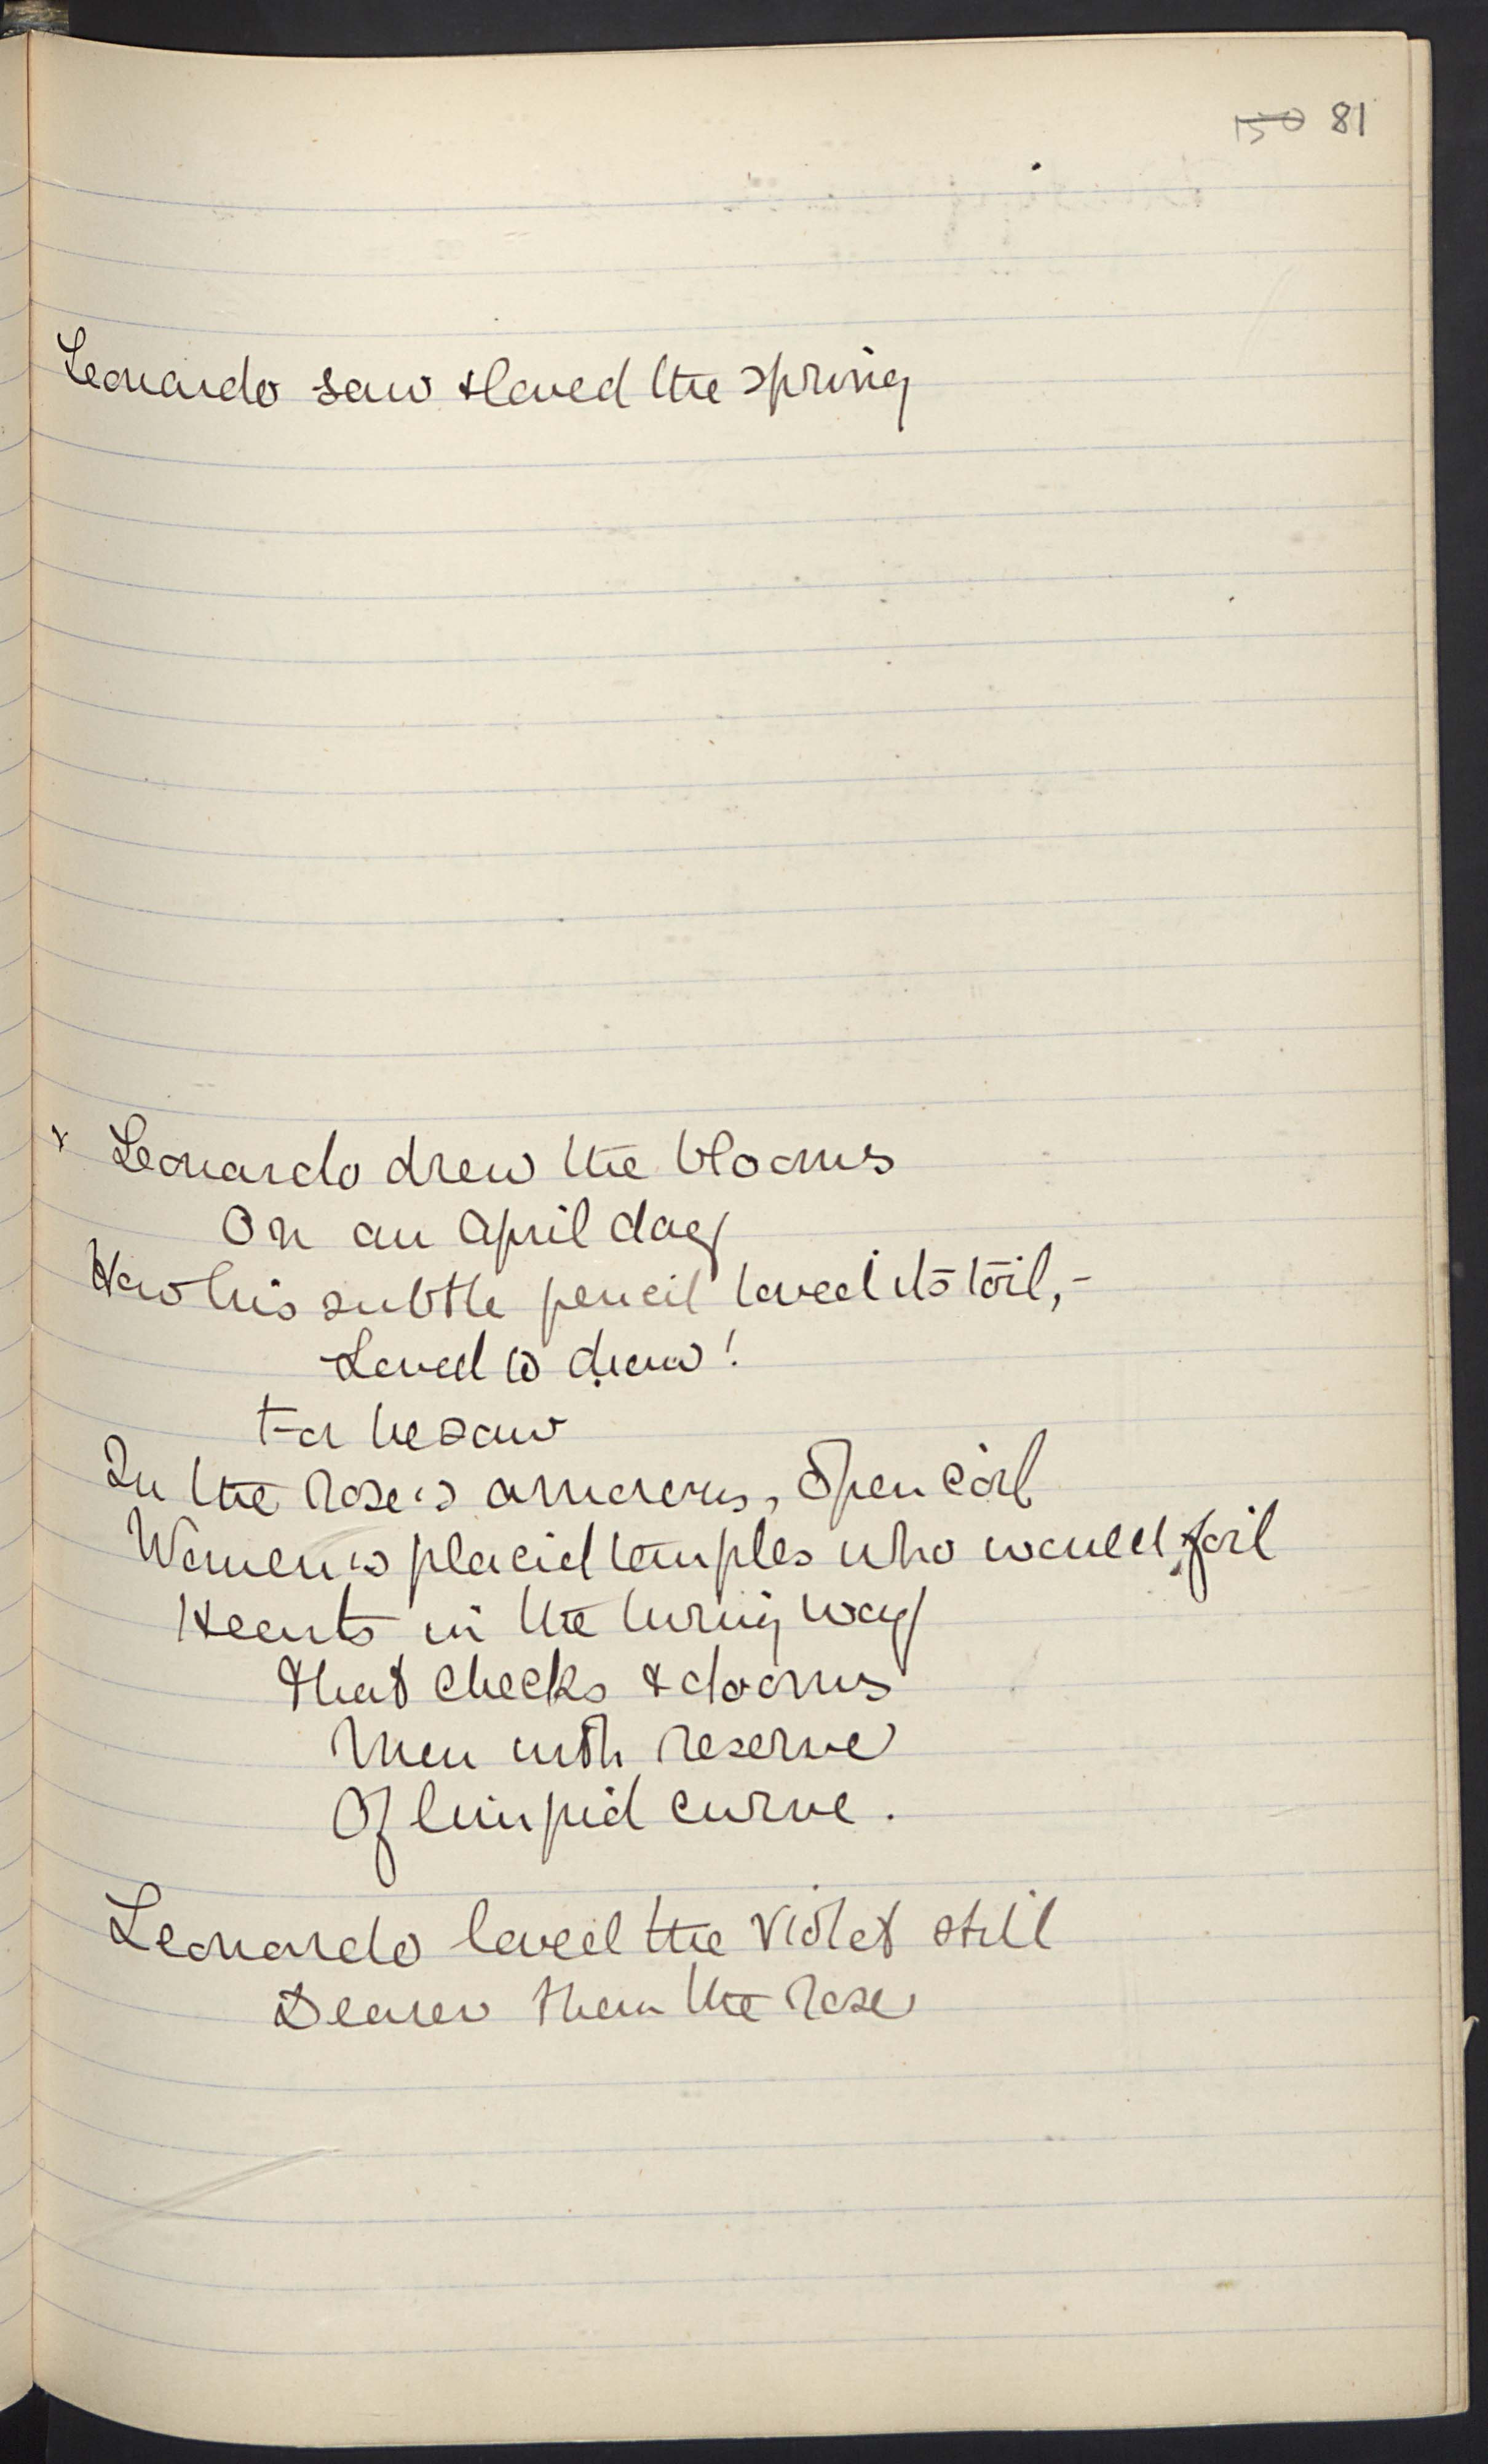 150 81
Leonardo saw & loved the spring
x Leonardo drew the blooms
On an April day
How his subtle pencil loved its toil,-
Loved to draw!
For he saw
In the rose's amorous, open coil
Women's placid temples who would foil
Hearts in the luring way
That checks & dooms
Men with reserve
Of limpid curve.
Leonardo loved the violet still
Dearer than the rose